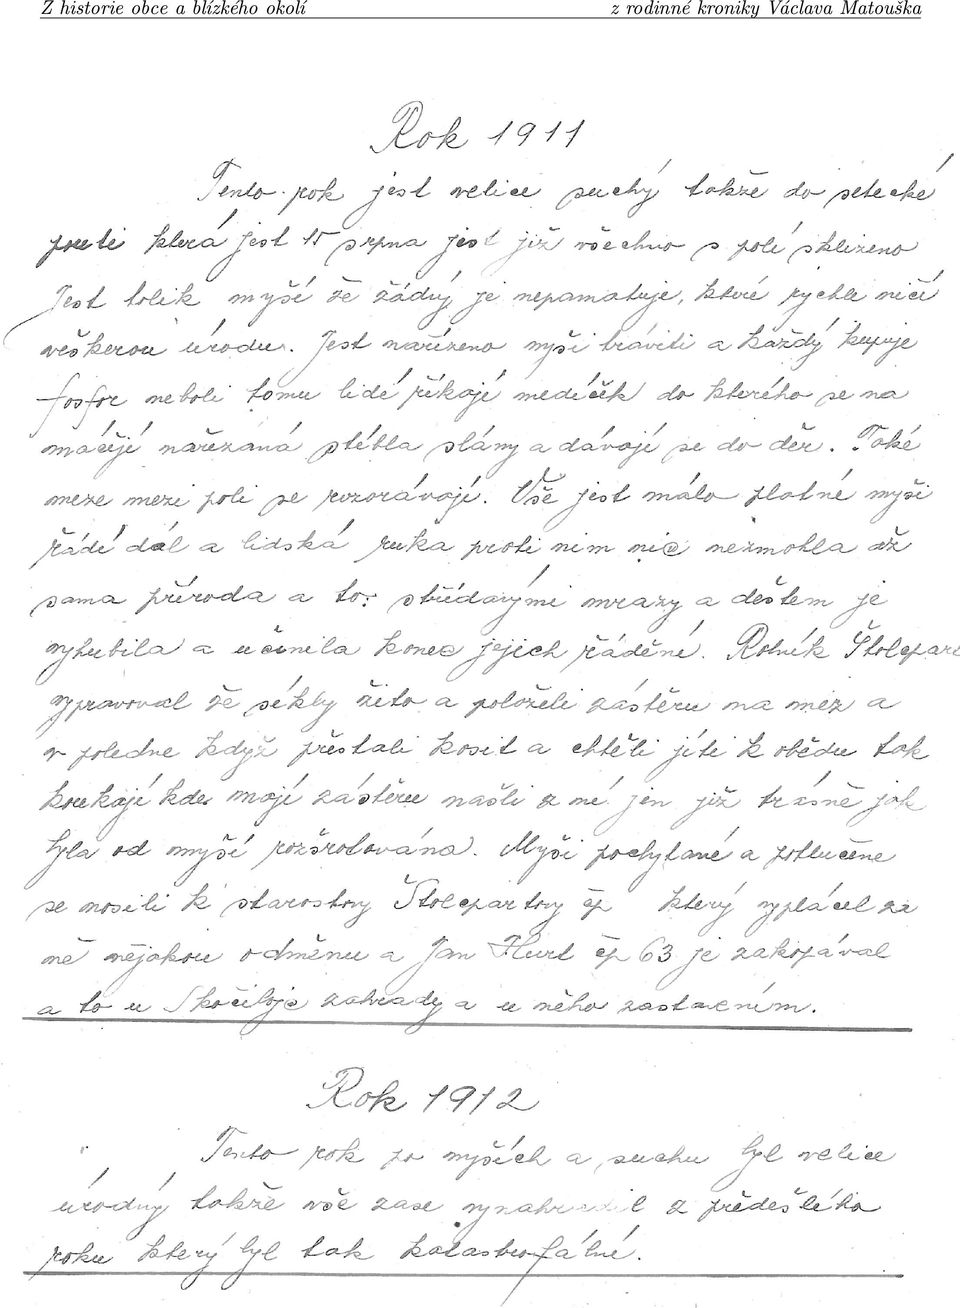 Z historie obce a blízkého okolí z rodinné kroniky Václava Matouška
Rok 1911
Tento rok jest velice suchý takže do setecké
pouti která jest 15 srpna jest již všechno s polí sklizeno
Jest tolik myší že žádný je nepamatuje, které rychle ničí
veškerou úrodu. Jest nařízeno myši tráviti a každý kupuje
fosfor neboli tomu lidé říkají medíček do kterého se na
máčejí nařezaná stébla slámy a dávají se do děr. Také
meze mezi poli se rozorávají. Vše jest málo platné myši
řádí dál a lidská ruka proti nim nic nezmohla až
sama příroda a to: střídavými mrazy a deštem je
vyhubila a učinila konec jejich řáděné. Rolník Štolcpart
vypravoval že sékly žito a položeli zástěru na mez a
v poledne když přestali kosit a chtěli jíti k obědu tak
koukají kde mají zástěru našli z né jen již trásně jak
byla od myší rozšrotována. Myši pochytané a potlučene
se nosili k starostovy Štolcpartovy čp který vyplácel za
ně nějakou odměnu a Jan Hurt čp 63 je zakopával
a to u Skočilojc zahrady a u něho zastavením.
Rok 1912
Tento rok po myších a suchu byl velice
úrodný takže vše zase vynahradil z předešlého
roku který byl tak katastrofálné.